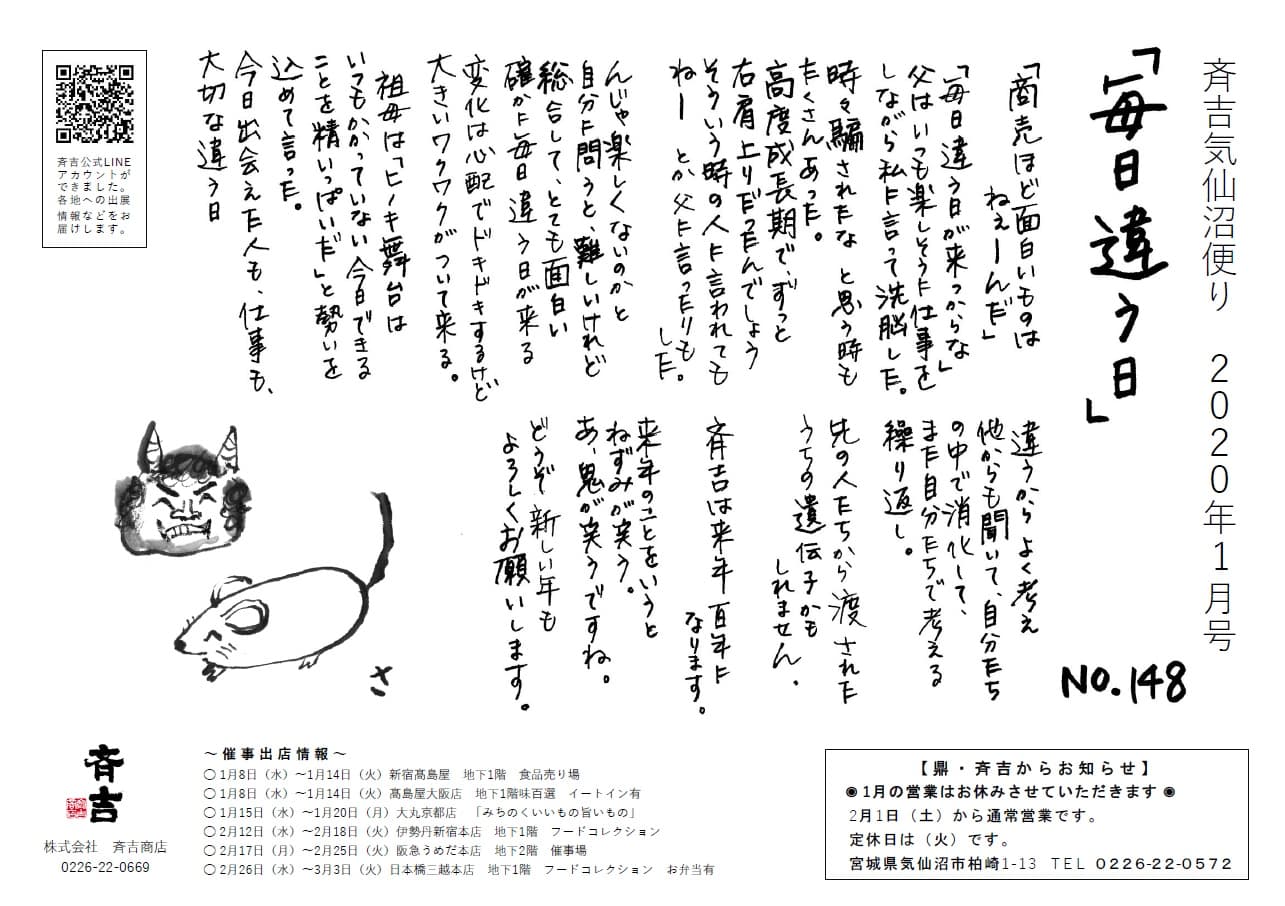 斉吉気仙沼便り　2020年1月号
「毎日違う日」
NO.148
「商売ほど面白いものは
ねぇーんだ」
「毎日違う日が来っからな」
父はいつも楽しそうに仕事を
しながら私に言って洗脳した。
時々騙されたな と思う時も
たくさんあった。
高度成長期で、ずっと
右肩上りだったんでしょう
そういう時の人に言われても
ねー　とか父に言ったりも
した。
んじゃ楽しくないのかと
自分に問うと、難しいけれど
総合して、とても面白い
確かに毎日違う日が来る
変化は心配でドキドキするけど
大きいワクワクがついて来る。
祖母は「ヒノキ舞台は
いつもかかっていない今日できる
ことを精いっぱいだ」と勢いを
込めて言った。
今日出会えた人も、仕事も、
大切な違う日
違うから よく考え
他からも聞いて、自分たち
の中で消化して、
また自分たちで考える
繰り返し。
先の人たちから渡された
うちの遺伝子かも
しれません。
斉吉は来年 百年に
なります。
来年のことをいうと
ねずみが笑う。
あ、鬼が笑うですね。
どうぞ新しい年も
よろしくお願いします。
さ
斉吉公式LINE
アカウントが
できました。
各地への出展
情報などをお
届けします。
斉吉
株式会社　斉吉商店
0226-22-0669
～催事出店情報～
〇1月8日（水）～1月14日（火）新宿髙島屋　地下1階　食品売り場
〇1月8日（水）～1月14日（火）髙島屋大阪店　地下1階味百選　イートイン有
〇1月15日（水）～1月20日（月）大丸京都店　「みちのくいいもの旨いもの」
〇2月12日（水）～2月18日（火）伊勢丹新宿本店　地下1階　フードコレクション
〇2月17日（月）～2月25日（火）阪急うめだ本店　地下2階　催事場
〇2月26日（水）～3月3日（火）日本橋三越本店　地下1階　フードコレクション　お弁当有
【鼎・斉吉からお知らせ】
◉1月の営業はお休みさせていただきます◉
2月1日（土）から通常営業です。
定休日は（火）です。
宮城県気仙沼市柏崎1-13　TEL 0226-22-0572